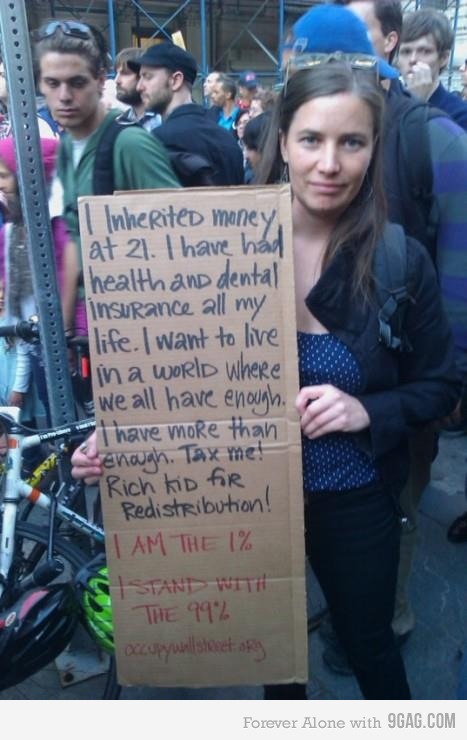 I InheRiteD money
at 21. I have had
health and dental
insurance all my
life. I want to live
in a woRLD wheRe
we all have enough.
I have moRe than
enough. Tax me!
RicH KiD foR
Redistribution!
I AM THE 1%
I STAND WITH
THE 99%
occupywallstreet.org
Forever Alone with 9GAG.COM!